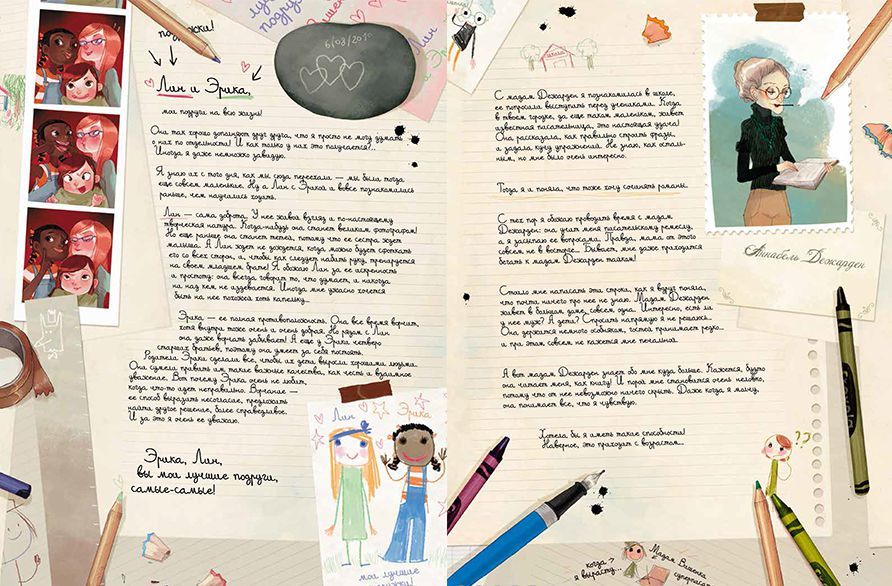 подружки!
6/03/2010
Лин и Эрика,
мои подруги на всю жизнь!
Они так хорошо дополняют друг друга, что я просто не могу думать
о них по отдельности! И как только у них это получается?..
Иногда я даже немножко завидую.
Я знаю их с того дня, как мы сюда переехали — мы были тогда
еще совсем маленькие. Ну а Лин с Эрикой и вовсе познакомились
раньше, чем научились ходить.
Лин — сама доброта. У нее живой взгляд и по-настоящему
творческая натура. Когда-нибудь она станет великим фотографом!
Но еще раньше она станет тетей, потому что ее сестра ждет
малыша. А Лин ждет не дождется, когда можно будет сфоткать
его со всех сторон, и, чтобы как следует набить руку, тренируется
на своем младшем брате! Я обожаю Лин за ее искренность
и простоту: она всегда говорит то, что думает, и никогда
ни над кем не издевается. Иногда мне ужасно хочется
быть на нее похожей хоть капельку...
Эрика — ее полная противоположность. Она все время ворчит,
хотя внутри тоже очень и очень добрая. Но рядом с Лин
она даже ворчать забывает! А еще у Эрики четверо
старших братьев, поэтому она умеет за себя постоять.
Родители Эрики сделали все, чтобы их дети выросли хорошими людьми.
Они сумели привить им такие важные качества, как честь и взаимное
уважение. Вот почему Эрика очень не любит,
когда что-то идет неправильно. Ворчание —
ее способ выразить несогласие, предложить
найти другое решение, более справедливое.
И за это я очень ее уважаю.
Эрика, Лин,
вы мои лучшие подруги,
самые-самые!
Лин
Эрика
мои лучшие
С мадам Дежарден я познакомилась в школе,
ее попросили выступить перед учениками. Когда
в твоем городке, да еще таком маленьком, живет
известная писательница, это настоящая удача!
Она рассказала, как правильно строить фразы,
и задала кучу упражнений. Не знаю, как осталь-
ным, но мне было очень интересно.
Тогда я и поняла, что тоже хочу сочинять романы.
С тех пор я обожаю проводить время с мадам
Дежарден: она учит меня писательскому ремеслу,
а я засыпаю ее вопросами. Правда, мама от этого
совсем не в восторге... Бывает, мне даже приходится
бегать к мадам Дежарден тайком!
Стоило мне написать эти строки, как я вдруг поняла,
что почти ничего про нее не знаю. Мадам Дежарден
живет в большом доме, совсем одна. Интересно, есть ли
у нее муж? А дети? Спросить напрямую я не решаюсь...
Она держится немного особняком, гостей принимает редко...
и при этом совсем не кажется мне печальной.
А вот мадам Дежарден знает обо мне куда больше. Кажется, будто
она читает меня, как книгу! И порой мне становится очень неловко,
потому что от нее невозможно ничего скрыть. Даже когда я молчу,
она понимает все, что я чувствую.
Хотела бы я иметь такие способности!
Наверное, это приходит с возрастом...
Аннабель Дежарден
??
когда
я вырасту...
Мадам Вишенка